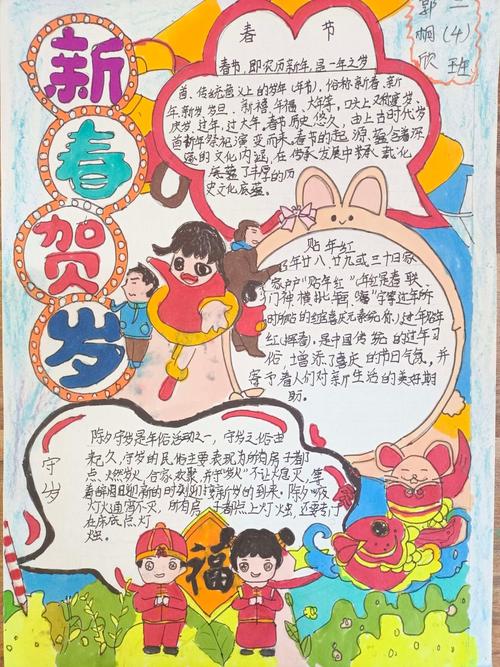 新
春
贺
岁
二(4)班
郭桐欣
春 节
春节,即农历新年,是一年之岁
首、传统意义上的岁年(年节)。俗称新春、新
年、新岁、岁旦、新禧、年禧、大年等,口头上又称度岁、
庆岁、过年、过大年。春节历史悠久,由上古时代岁
首新年祭祀演变而来。春节的起源蕴含着深
邃的文化内涵,在传承发展中承载
底蕴了丰厚的历
史文化底蕴。
贴年红
年廿八、廿九或三十日家
家户户"贴年红"(年红是春联、
门神、横批、年画、"福"字等过年所
时所贴的红色喜庆元素统称)。过年贴年
红(挥春),是中国传统的过年习
俗,增添了喜庆的节日气氛,并
寄予着人们对新年生活的美好期
盼。
守岁
除夕守岁是年俗活动之一,守岁之俗由
来已久。守岁的民俗主要表现为所有房子都
点燃岁火,合家欢聚,并守"岁火"不让熄灭,等
着辞旧迎新的时刻,迎接新岁的到来。除夕夜
灯火通宵不灭,所有房子都点上灯烛,还要
在床底点灯
烛。
福